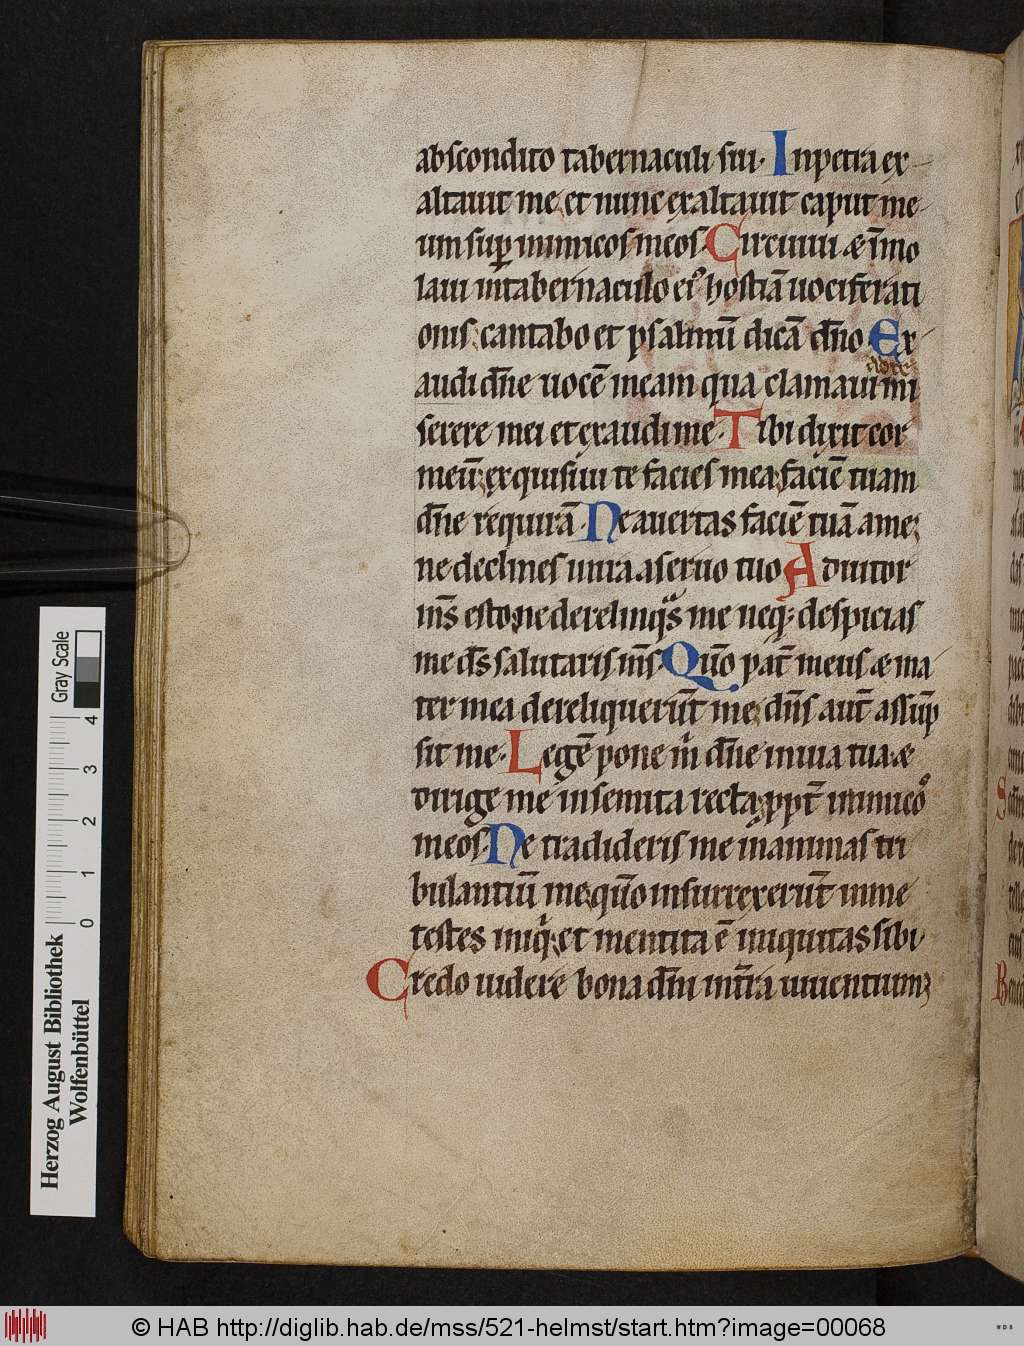 abscondito tabernaculi sui· Inpetra ex-
altauit me et nunc exaltauit caput me
um suꝑ inimicos meos· Circuiui & īmo
laui intabernaculo ei⁹ hostiā uociferati
onis cantabo et psalmū dicā dn̄o· Ex
audi dn̄e uocē meam qua clamaui mi
ad te
serere mei et exaudi me· Tibi dixit cor
meū exquisiui te facies mea faciē tuam
dn̄e requirā· Ne auertas faciē tuā ame;
ne declines inira aseruo tuo Adiutor
m̄s esto ne derelinqͣs me neq; despicias
me ds̄ salutaris m̄s· Qūo pat̄ meus & ma
ter mea dereliquerūt me dn̄s aut̄ assūp
sit me· Legē pone m̄ dn̄e inuia tua &
dirige me insemita recta ppt̄ inimicos
meos· Ne tradideris me inanimas tri
bulantiū me qūo insurrexerūt inme
testes iniqⁱ et mentita ē iniquitas sibi
Credo uidere bona dn̄i int̄ra uiuentium
Herzog August Bibliothek
Wolfenbüttel
0 1 2 3 4
Gray Scale
© HAB http://diglib.hab.de/mss/521-helmst/start.htm?image=00068